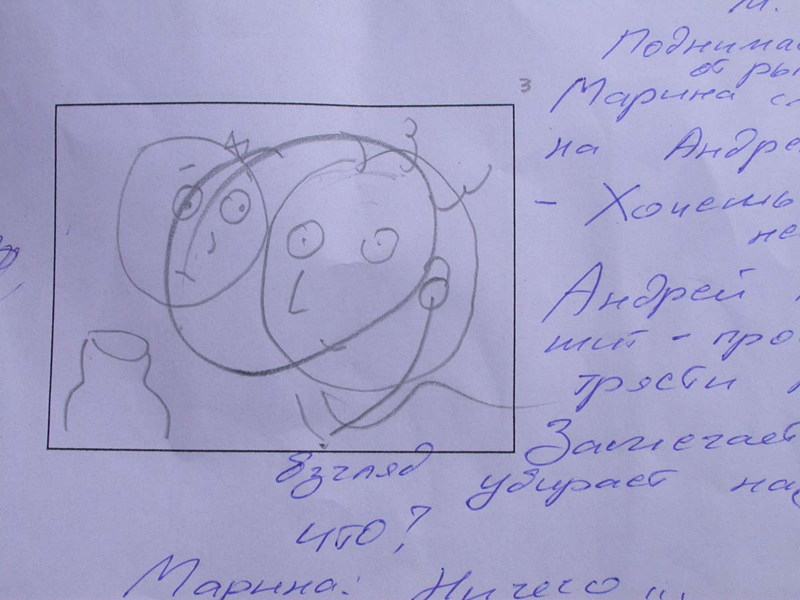 3
Поднимае
Марина с
на Андре
- Хочешь
не
Андрей
шит - про
трясти
Замечает
взгляд убирает наз
что?
Марина: Ничего ...